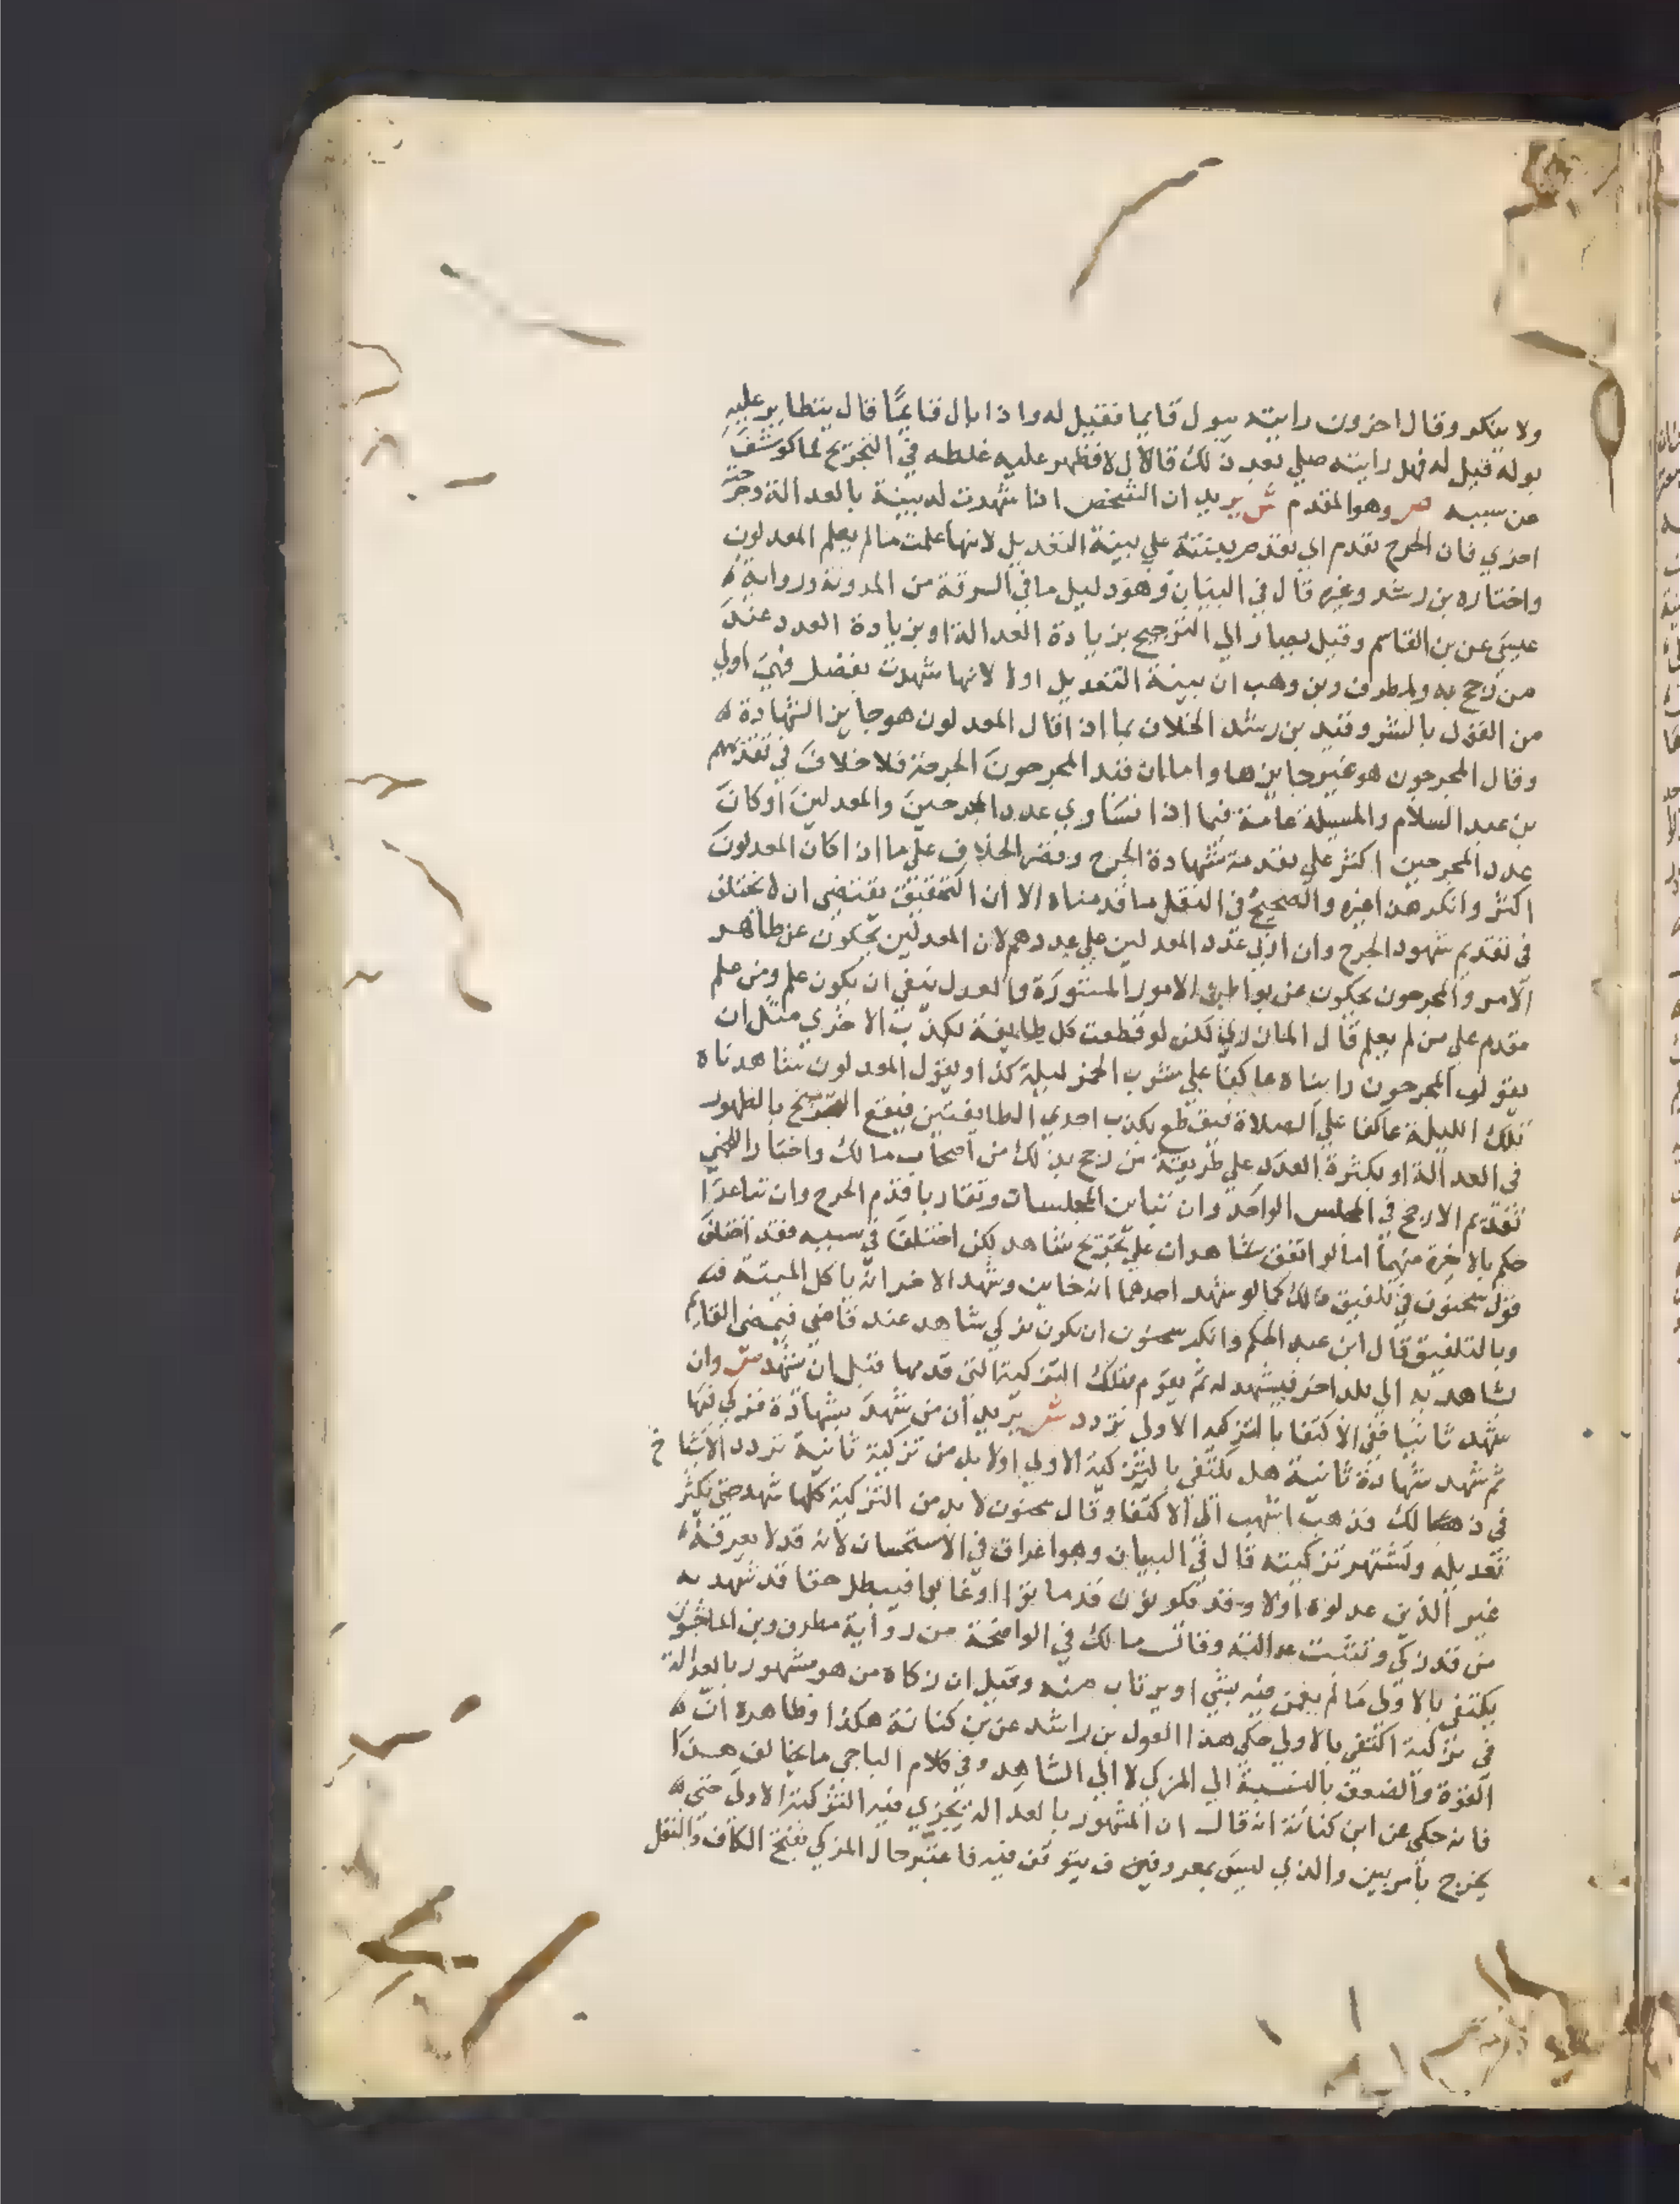 ولا ينكر وقال اخرون رايته يبول قايما فقيل له واذا بال قايمًا قال يتطاير عليه
بوله فقيل له فهل رايته صلي بعد ذلك قال لا فظهر عليه غلطه في التجريح لما كوشف
عن سببه ص وهو المقدم ش يريد ان الشخص اذا شهدت له بينة بالعدالة وجرحته
اخري فان الجرح تقدم اي تقدم بينته علي بينة التعديل لانها علمت ما لم يعلم المعدلون
واختاره بن رشد وغيره قال في البيان وهو دليل ما في السرقة من المدونة ورواية ه
عيسي عن بن القاسم وقيل يصار الي الترجيح بزيادة العدالة او بزيادة العدد عند
من رجح به ولمطرف وبن وهب ان بينة التعديل اولا لانها شهدت بفضل فهي اولي
من القول بالشر وقيد بن رشد الخلاف بما اذا قال المعدلون هو جايز الشهادة ه
وقال المجرحون هو غير جايزها واما ان قيد المجرحون الجرحة فلا خلاف في تقديمهم
بن عبد السلام والمسيلة عامة فيما اذا تساوي عدد المجرحين والمعدلين او كان
عدد المجرحين اكثر علي تقدمة شهادة الجرح وقصر الخلاف علي ما اذا كان المعدلون
اكثر وانكر هذا غيره والصحيح في النقل ما قدمناه الا ان التحقيق يقتضي ان لا يختلف
في تقديم شهود الجرح وان اربي عدد المعدلين علي عددهم لان المعدلين يحكون عن ظاهر
الامر والمجرحون يحكون عن بواطن الامور المستورة والعدل ينبغي ان يكون علم ومن علم
مقدم علي من لم يعلم قال المازري لكن لو قطعت كل طايفة بكذب الاخري مثل ان
يقول المجرحون رايناه عاكفا علي شرب الخمر ليلة كذا ويقول المعدلون شاهدناه
تلك الليلة عاكفا علي الصلاة فيقطع بكذب احدي الطايفتين فيقع الترجيح بالظهور
في العدالة او بكثرة العدد علي طريقة من رجح بذلك من اصحاب مالك واختار اللخمي
تقديم الارجح في المجلس الواحد وان تباين المجلسان وتقاربا قدم الجرح وان تباعدا
حكم بالاخرة منهما اما لو اتفق شاهدان علي تجريح شاهد لكن اختلفا في سببه فقد اختلف
قول سحنون في تلفيق ذلك كما لو شهد احدهما انه خاين وشهد الاخر انه ياكل الميتة فيه
وبالتلفيق قال ابن عبد الحكم وانكر سحنون ان يكون تزكي شاهد عند قاضي فيمضي القايم
بشاهد به الي بلد اخر فيشهد له ثم يقوم بتلك التزكية التي قدمها قبل ان يشهد ص وان
شهد ثانيا ففي الاكتفا بالتزكية الاولي تردد ش يريد ان من شهد بشهادة فزكي فيها
ثم شهد شهادة ثانية هل يكتفي بالتزكية الاولي اولا بد من تزكية ثانية تردد الاشياخ
في ذلك فذهب اشهب الي الاكتفا وقال سحنون لا بد من التزكية كلما شهد حتي يكثر
تعديله وتشتهر تزكيته قال في البيان وهو اغراق في الاستحسان لانه قد لا يعرفه ه
غير الذين عدلوه اولا وقد يكونون قد ماتوا او غابوا فيبطل حقا قد شهد به
من قد زكي وتثبتت عدالته وقال مالك في الواضحة من رواية مطرف وبن الماجشون
يكتفي بالاولي ما لم يغمز فيه بشي او يرتاب منه وقيل ان زكاه من هو مشهور بالعدالة
في تزكية اكتفي بالاولي حكي هذا القول بن راشد عن بن كنانة هكذا وظاهره ان ه
القوة والضعف بالنسبة الي المزكي لا الي الشاهد وفي كلام الباجي ما يخالف هذا
فانه حكي عن ابن كنانة انه قال ان المشهور بالعدالة تجزي فيه التزكية الاولي حتي ه
يخرج بامر بين والذي ليس بمعروف يتوقف فيه فاعتبر حال المزكي بفتح الكاف والنقل